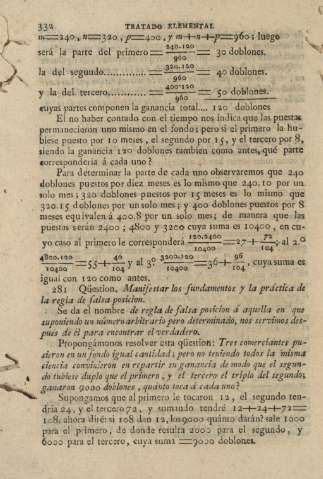 332 TRATADO ELEMENTAL
m=240, n=320, p=400, y m+n+p=960; luego
será la parte del primero = 240.120/960 = 30 doblones.
la del segundo............ = 320.120/960 = 40 doblones.
y la del tercero.......... = 400.120/960 = 50 doblones.
cuyas partes componen la ganancia total.... 120 doblones
El no haber contado con el tiempo nos indica que las puestas
permanecieron uno mismo en el fondo; pero si el primero la hu-
biese puesto por 10 meses, el segundo por 15, y el tercero por 8,
siendo la ganancia 120 doblones tambien como antes, qué parte
corresponderia á cada uno?
Para determinar la parte de cada uno observaremos que 240
doblones puestos por diez meses es lo mismo que 240.10 por un
solo mes; 320 doblones puestos por 15 meses es lo mismo que
320.15 doblones por un solo mes; y 400 doblones puestos por 8
meses equivalen á 400.8 por un solo mes; de manera que las
puestas serán 2400; 4800 y 3200 cuya suma es 10400, en cu-
yo caso al primero le corresponderá 120.2400/10400 = 27+72/104; al 2.º
4800.120/10400 = 55+40/104 y al 3º 3200.120/10400 = 36+96/104, cuya suma es
igual con 120 como antes.
281 Qüestion. Manifestar los fundamentos y la práctica de
la regla de falsa posicion.
Se da el nombre de regla de falsa posicion á aquella en que
suponiendo un número arbitrario pero determinado, nos servimos des-
pues de él para encontrar el verdadero.
Propongámonos resolver esta qüestion: Tres comerciantes pu-
sieron en un fondo igual cantidad; pero no teniendo todos la misma
ciencia convinieron en repartir su ganancia de modo que el segun-
do tubiese duplo que el primero, y el tercero el triplo del segundo;
ganaron 9000 doblones, quánto toca á cada uno?
Supongamos que al primero le tocaron 12, el segundo ten-
dria 24, y el tercero 72, y sumando tendré 12+24+72=
108; ahora diré: si 108 dan 12, los 9000 quánto darán? sale 1000
para el primero, de donde resulta 2000 para el segundo, y
6000 para el tercero, cuya suma = 9000 doblones.